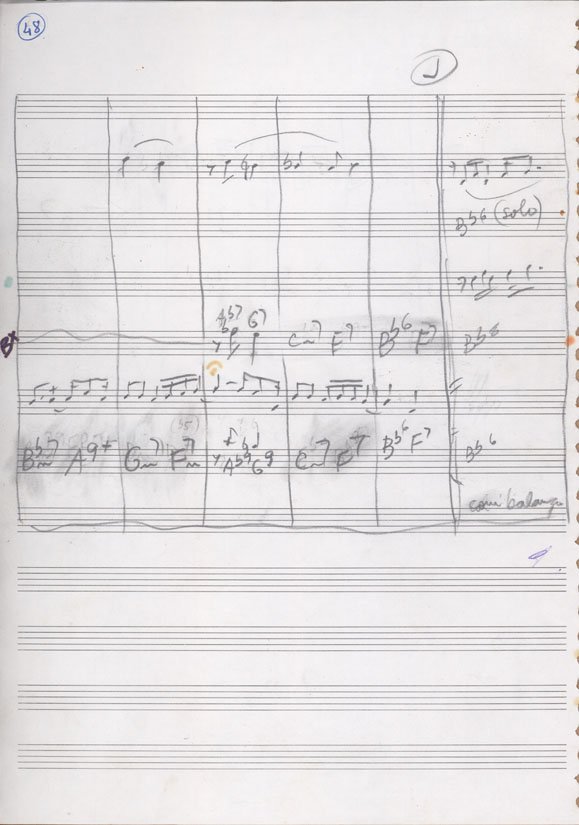 48
J
Bb6 (solo)
Ab7 G7 Cm7 F7 Bb6 F7 Bb6
Bbm7 A9+ Gm7 Fm7 Ab9 G9 Cm7 F7 Bb6 F7 Bb6
com balanço